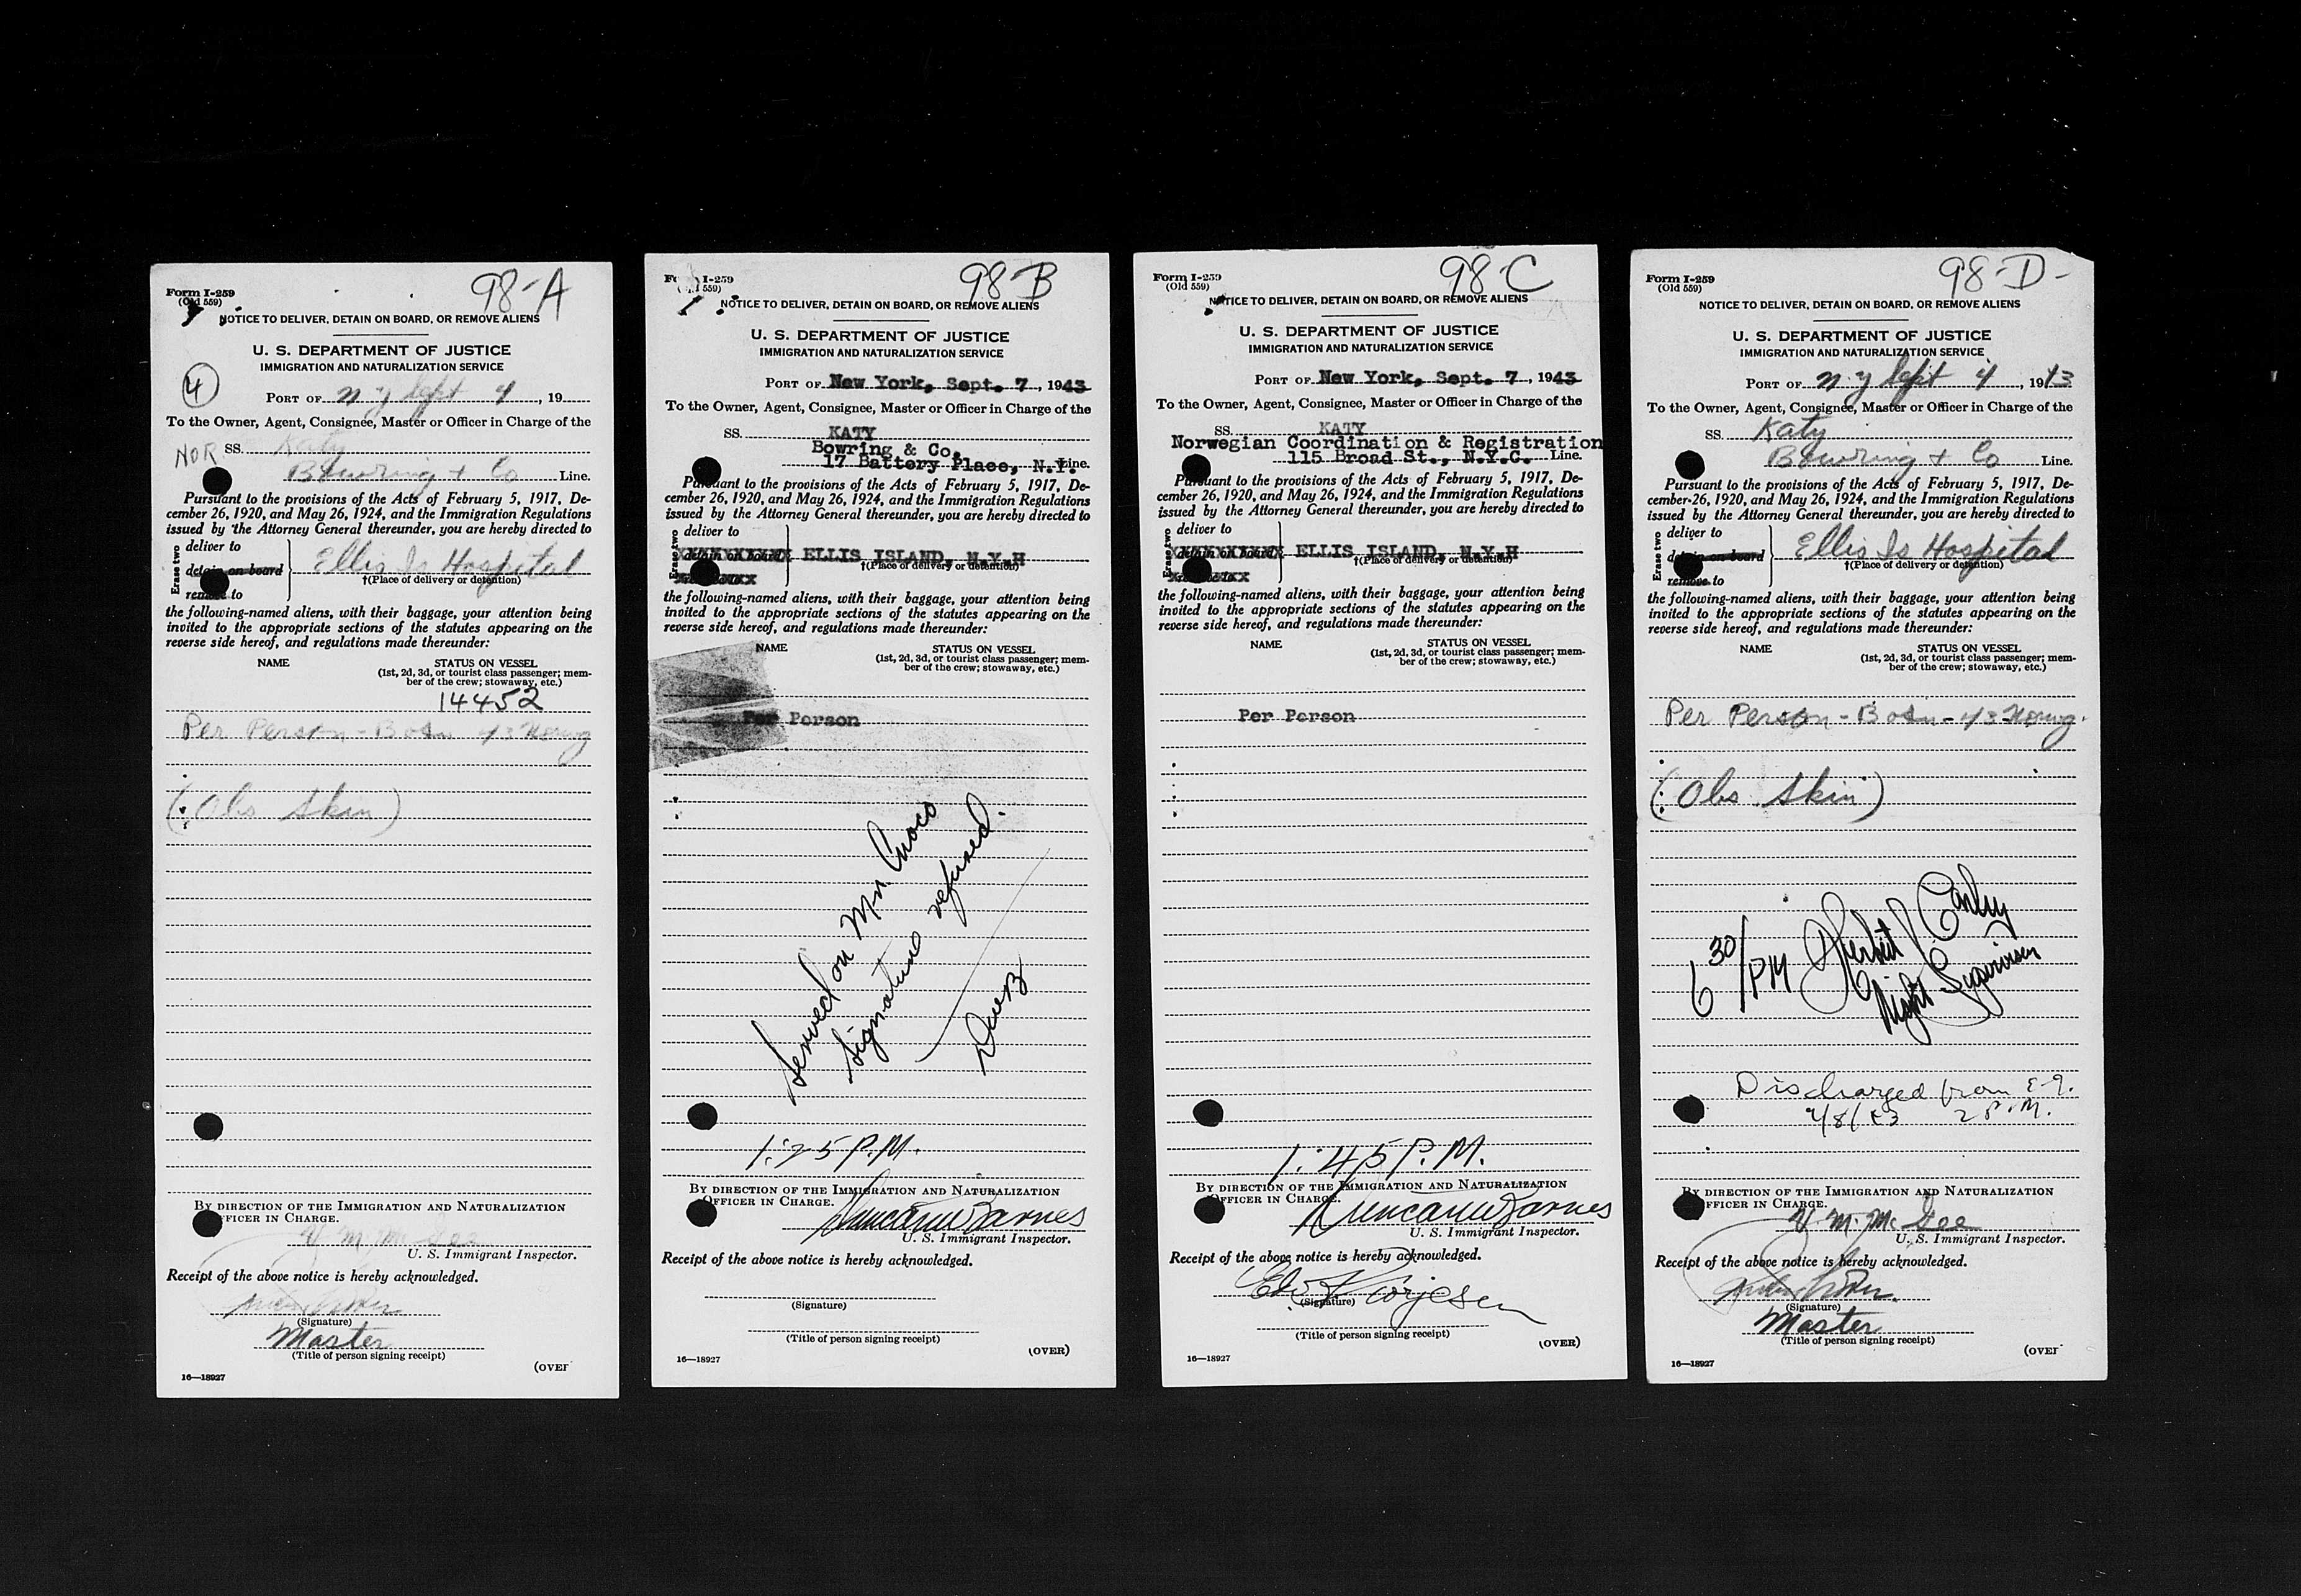 98-A
Form I-259
(Old 559)
NOTICE TO DELIVER, DETAIN ON BOARD, OR REMOVE ALIENS
U. S. DEPARTMENT OF JUSTICE
IMMIGRATION AND NATURALIZATION SERVICE
4
PORT OF N.Y Sept 4, 19
To the Owner, Agent, Consignee, Master or Officer in Charge of the
NOR SS. Katy
Bowring + Co Line.
Pursuant to the provisions of the Acts of February 5, 1917, De-
cember 26, 1920, and May 26, 1924, and the Immigration Regulations
issued by the Attorney General thereunder, you are hereby directed to
Erase two
deliver to
detain on board
remove to
Ellis Is Hospital
†(Place of delivery or detention)
the following-named aliens, with their baggage, your attention being
invited to the appropriate sections of the statutes appearing on the
reverse side hereof, and regulations made thereunder:
NAME STATUS ON VESSEL
(1st, 2d, 3d, or tourist class passenger; mem-
ber of the crew; stowaway, etc.)
14452
Per Person - Bosn 43 Norwg
(Obs Skin)
BY DIRECTION OF THE IMMIGRATION AND NATURALIZATION
OFFICER IN CHARGE.
V. M. McGee
U. S. Immigrant Inspector.
Receipt of the above notice is hereby acknowledged.
(Signature)
Master
(Title of person signing receipt)
(OVER
16—18927
98-B
Form I-259
(Old 559)
NOTICE TO DELIVER, DETAIN ON BOARD, OR REMOVE ALIENS
U. S. DEPARTMENT OF JUSTICE
IMMIGRATION AND NATURALIZATION SERVICE
PORT OF New York, Sept. 7, 1943
To the Owner, Agent, Consignee, Master or Officer in Charge of the
SS. KATY
Bowring & Co.
17 Battery Place, N.Y. Line.
Pursuant to the provisions of the Acts of February 5, 1917, De-
cember 26, 1920, and May 26, 1924, and the Immigration Regulations
issued by the Attorney General thereunder, you are hereby directed to
Erase two
deliver to
detain on board ELLIS ISLAND, N.Y.H
†(Place of delivery or detention)
the following-named aliens, with their baggage, your attention being
invited to the appropriate sections of the statutes appearing on the
reverse side hereof, and regulations made thereunder:
NAME STATUS ON VESSEL
(1st, 2d, 3d, or tourist class passenger; mem-
ber of the crew; stowaway, etc.)
Per Person
Served on Mr. Cuoco
Signature refused.
1:25 P.M.
BY DIRECTION OF THE IMMIGRATION AND NATURALIZATION
OFFICER IN CHARGE.
Duncan W Barnes
U. S. Immigrant Inspector.
Receipt of the above notice is hereby acknowledged.
(Signature)
(Title of person signing receipt)
(OVER)
16—18927
98-C
Form I-259
(Old 559)
NOTICE TO DELIVER, DETAIN ON BOARD, OR REMOVE ALIENS
U. S. DEPARTMENT OF JUSTICE
IMMIGRATION AND NATURALIZATION SERVICE
PORT OF New York, Sept. 7, 1943
To the Owner, Agent, Consignee, Master or Officer in Charge of the
SS. KATY
Norwegian Coordination & Registration
115 Broad St., N.Y.C. Line.
Pursuant to the provisions of the Acts of February 5, 1917, De-
cember 26, 1920, and May 26, 1924, and the Immigration Regulations
issued by the Attorney General thereunder, you are hereby directed to
Erase two
deliver to
detain on board ELLIS ISLAND, N.Y.H
†(Place of delivery or detention)
the following-named aliens, with their baggage, your attention being
invited to the appropriate sections of the statutes appearing on the
reverse side hereof, and regulations made thereunder:
NAME STATUS ON VESSEL
(1st, 2d, 3d, or tourist class passenger; mem-
ber of the crew; stowaway, etc.)
Per Person
1:45 P.M.
BY DIRECTION OF THE IMMIGRATION AND NATURALIZATION
OFFICER IN CHARGE.
Duncan W Barnes
U. S. Immigrant Inspector.
Receipt of the above notice is hereby acknowledged.
(Signature)
(Title of person signing receipt)
(OVER)
16—18927
98-D-
Form I-259
(Old 559)
NOTICE TO DELIVER, DETAIN ON BOARD, OR REMOVE ALIENS
U. S. DEPARTMENT OF JUSTICE
IMMIGRATION AND NATURALIZATION SERVICE
PORT OF N.Y Sept 4, 1943
To the Owner, Agent, Consignee, Master or Officer in Charge of the
SS. Katy
Bowring + Co Line.
Pursuant to the provisions of the Acts of February 5, 1917, De-
cember 26, 1920, and May 26, 1924, and the Immigration Regulations
issued by the Attorney General thereunder, you are hereby directed to
Erase two
deliver to
detain on board
remove to
Ellis Is Hospital
†(Place of delivery or detention)
the following-named aliens, with their baggage, your attention being
invited to the appropriate sections of the statutes appearing on the
reverse side hereof, and regulations made thereunder:
NAME STATUS ON VESSEL
(1st, 2d, 3d, or tourist class passenger; mem-
ber of the crew; stowaway, etc.)
Per Person - Bosn - 43 Norwg.
(Obs. Skin)
6 30/PM
Night Supervisor
Discharged from E-9.
9/8/43 2 P.M.
BY DIRECTION OF THE IMMIGRATION AND NATURALIZATION
OFFICER IN CHARGE.
V. M. McGee
U. S. Immigrant Inspector.
Receipt of the above notice is hereby acknowledged.
(Signature)
Master
(Title of person signing receipt)
(OVER
16—18927